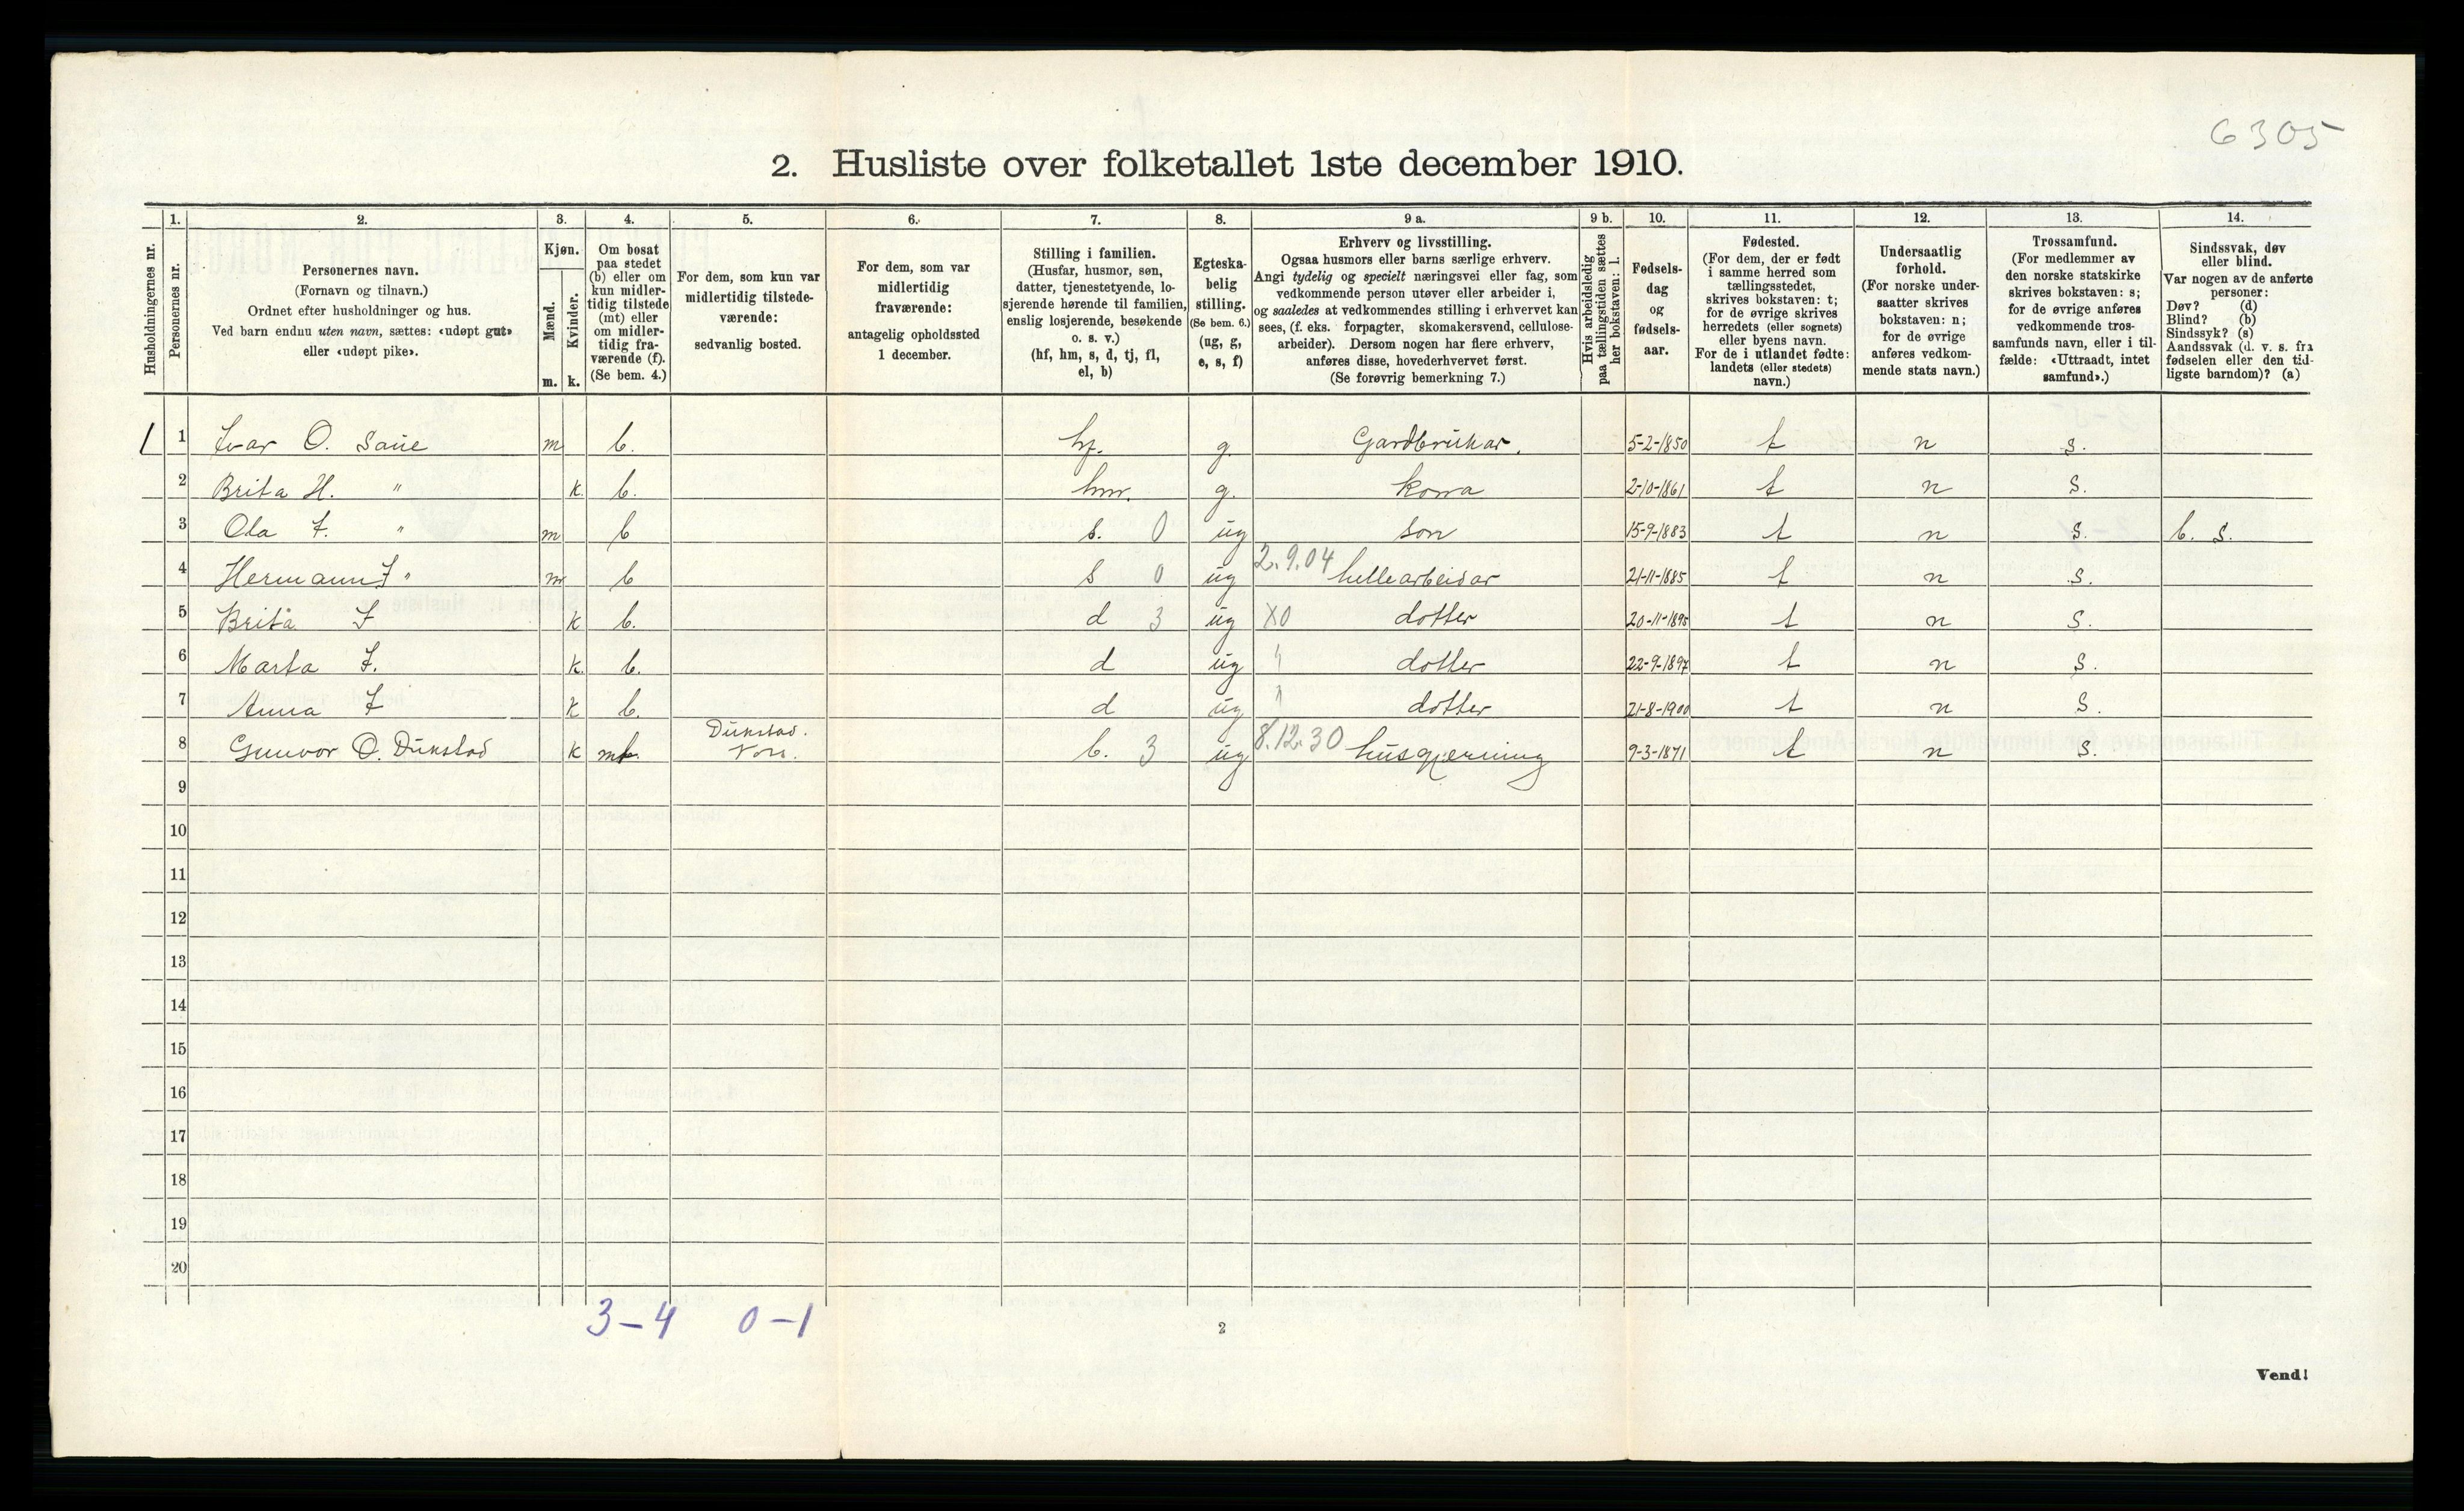 6305
2. Husliste over folketallet 1ste december 1910.
1. 2. 3. 4. 5. 6. 7. 8. 9 a. 9 b. 10. 11. 12. 13. 14.
Husholdningernes nr.
Personernes nr.
Personernes navn.
(Fornavn og tilnavn.)
Ordnet efter husholdninger og hus.
Ved barn endnu uten navn, sættes: «udøpt gut»
eller «udøpt pike».
Kjøn.
Mænd.
Kvinder.
m. k.
Om bosat
paa stedet
(b) eller om
kun midler-
tidig tilstede
(mt) eller
om midler-
tidig fra-
værende (f).
(Se bem. 4.)
For dem, som kun var
midlertidig tilstede-
værende:
sedvanlig bosted.
For dem, som var
midlertidig
fraværende:
antagelig opholdssted
1 december.
Stilling i familien.
(Husfar, husmor, søn,
datter, tjenestetyende, lo-
sjerende hørende til familien,
enslig losjerende, besøkende
o. s. v.)
(hf, hm, s, d, tj, fl,
el, b)
Egteska-
belig
stilling.
(Se bem. 6.)
(ug, g,
e, s, f)
Erhverv og livsstilling.
Ogsaa husmors eller barns særlige erhverv.
Angi tydelig og specielt næringsvei eller fag, som
vedkommende person utøver eller arbeider i,
og saaledes at vedkommendes stilling i erhvervet kan
sees, (f. eks. forpagter, skomakersvend, cellulose-
arbeider). Dersom nogen har flere erhverv,
anføres disse, hovederhvervet først.
(Se forøvrig bemerkning 7.)
Hvis arbeidsledig
paa tællingstiden sættes
her bokstaven: l.
Fødsels-
dag
og
fødsels-
aar.
Fødested.
(For dem, der er født
i samme herred som
tællingsstedet,
skrives bokstaven: t;
for de øvrige skrives
herredets (eller sognets)
eller byens navn.
For de i utlandet fødte:
landets (eller stedets)
navn.)
Undersaatlig
forhold.
(For norske under-
saatter skrives
bokstaven: n;
for de øvrige
anføres vedkom-
mende stats navn.)
Trossamfund.
(For medlemmer av
den norske statskirke
skrives bokstaven: s;
for de øvrige anføres
vedkommende tros-
samfunds navn, eller i til-
fælde: «Uttraadt, intet
samfund».)
Sindssvak, døv
eller blind.
Var nogen av de anførte
personer:
Døv? (d)
Blind? (b)
Sindssyk? (s)
Aandssvak (d. v. s. fra
fødselen eller den tid-
ligste barndom)? (a)
1 1 Ivar O. Saue m b. hf. g. Gardbrukar. 5-2-1850 t n s.
2 Brita H. " k. b. hm. g. kona 2-10-1861 t n s.
3 Ola I. " m b s. 0 ug son 15-9-1883 t n s. b. s.
4 Hermann I " m b s 0 ug 2.9.04 hellearbeidar 21-11-1885 t n s.
5 Brita I k b. d 3 ug X0 dotter 20-11-1895 t n s.
6 Marta I. k. b. d ug " dotter 22-9-1897 t n s.
7 Anna I k b. d ug " dotter 21-8-1900 t n s.
8 Gunvor O. Dukstad k mt. Dukstad. Voss. b. 3 ug 8.12.30 husgjerning 9-3-1871 t n s.
9
10
11
12
13
14
15
16
17
18
19
20
3-4 0-1
2
Vend!